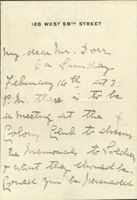 128 WEST 59TH STREET
My dear Mr. Dorr
On Sunday
February 16th at 3
P.M. there is to be
a meeting at the
Colony Club to discuss
the Memorial to Soldiers
& what they should be.
Could you be persuaded